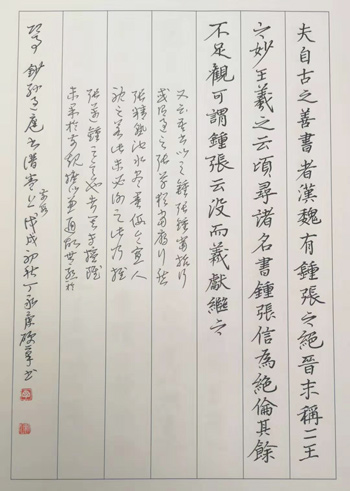 夫自古之善書者漢魏有鍾張之絕晉末稱二王
之妙王羲之云頃尋諸名書鍾張信為絕倫其餘
不足觀可謂鍾張云沒而羲獻繼之
又云吾書比之鍾張鍾當抗行
或謂過之張草猶當雁行然
張精熟池水盡墨假令寡人
耽之若此未必謝之此乃推
張邁鍾之意也考其專擅雖
未果於前規摭以兼通故無慚於
鈔孫過庭書譜
戊戌初秋